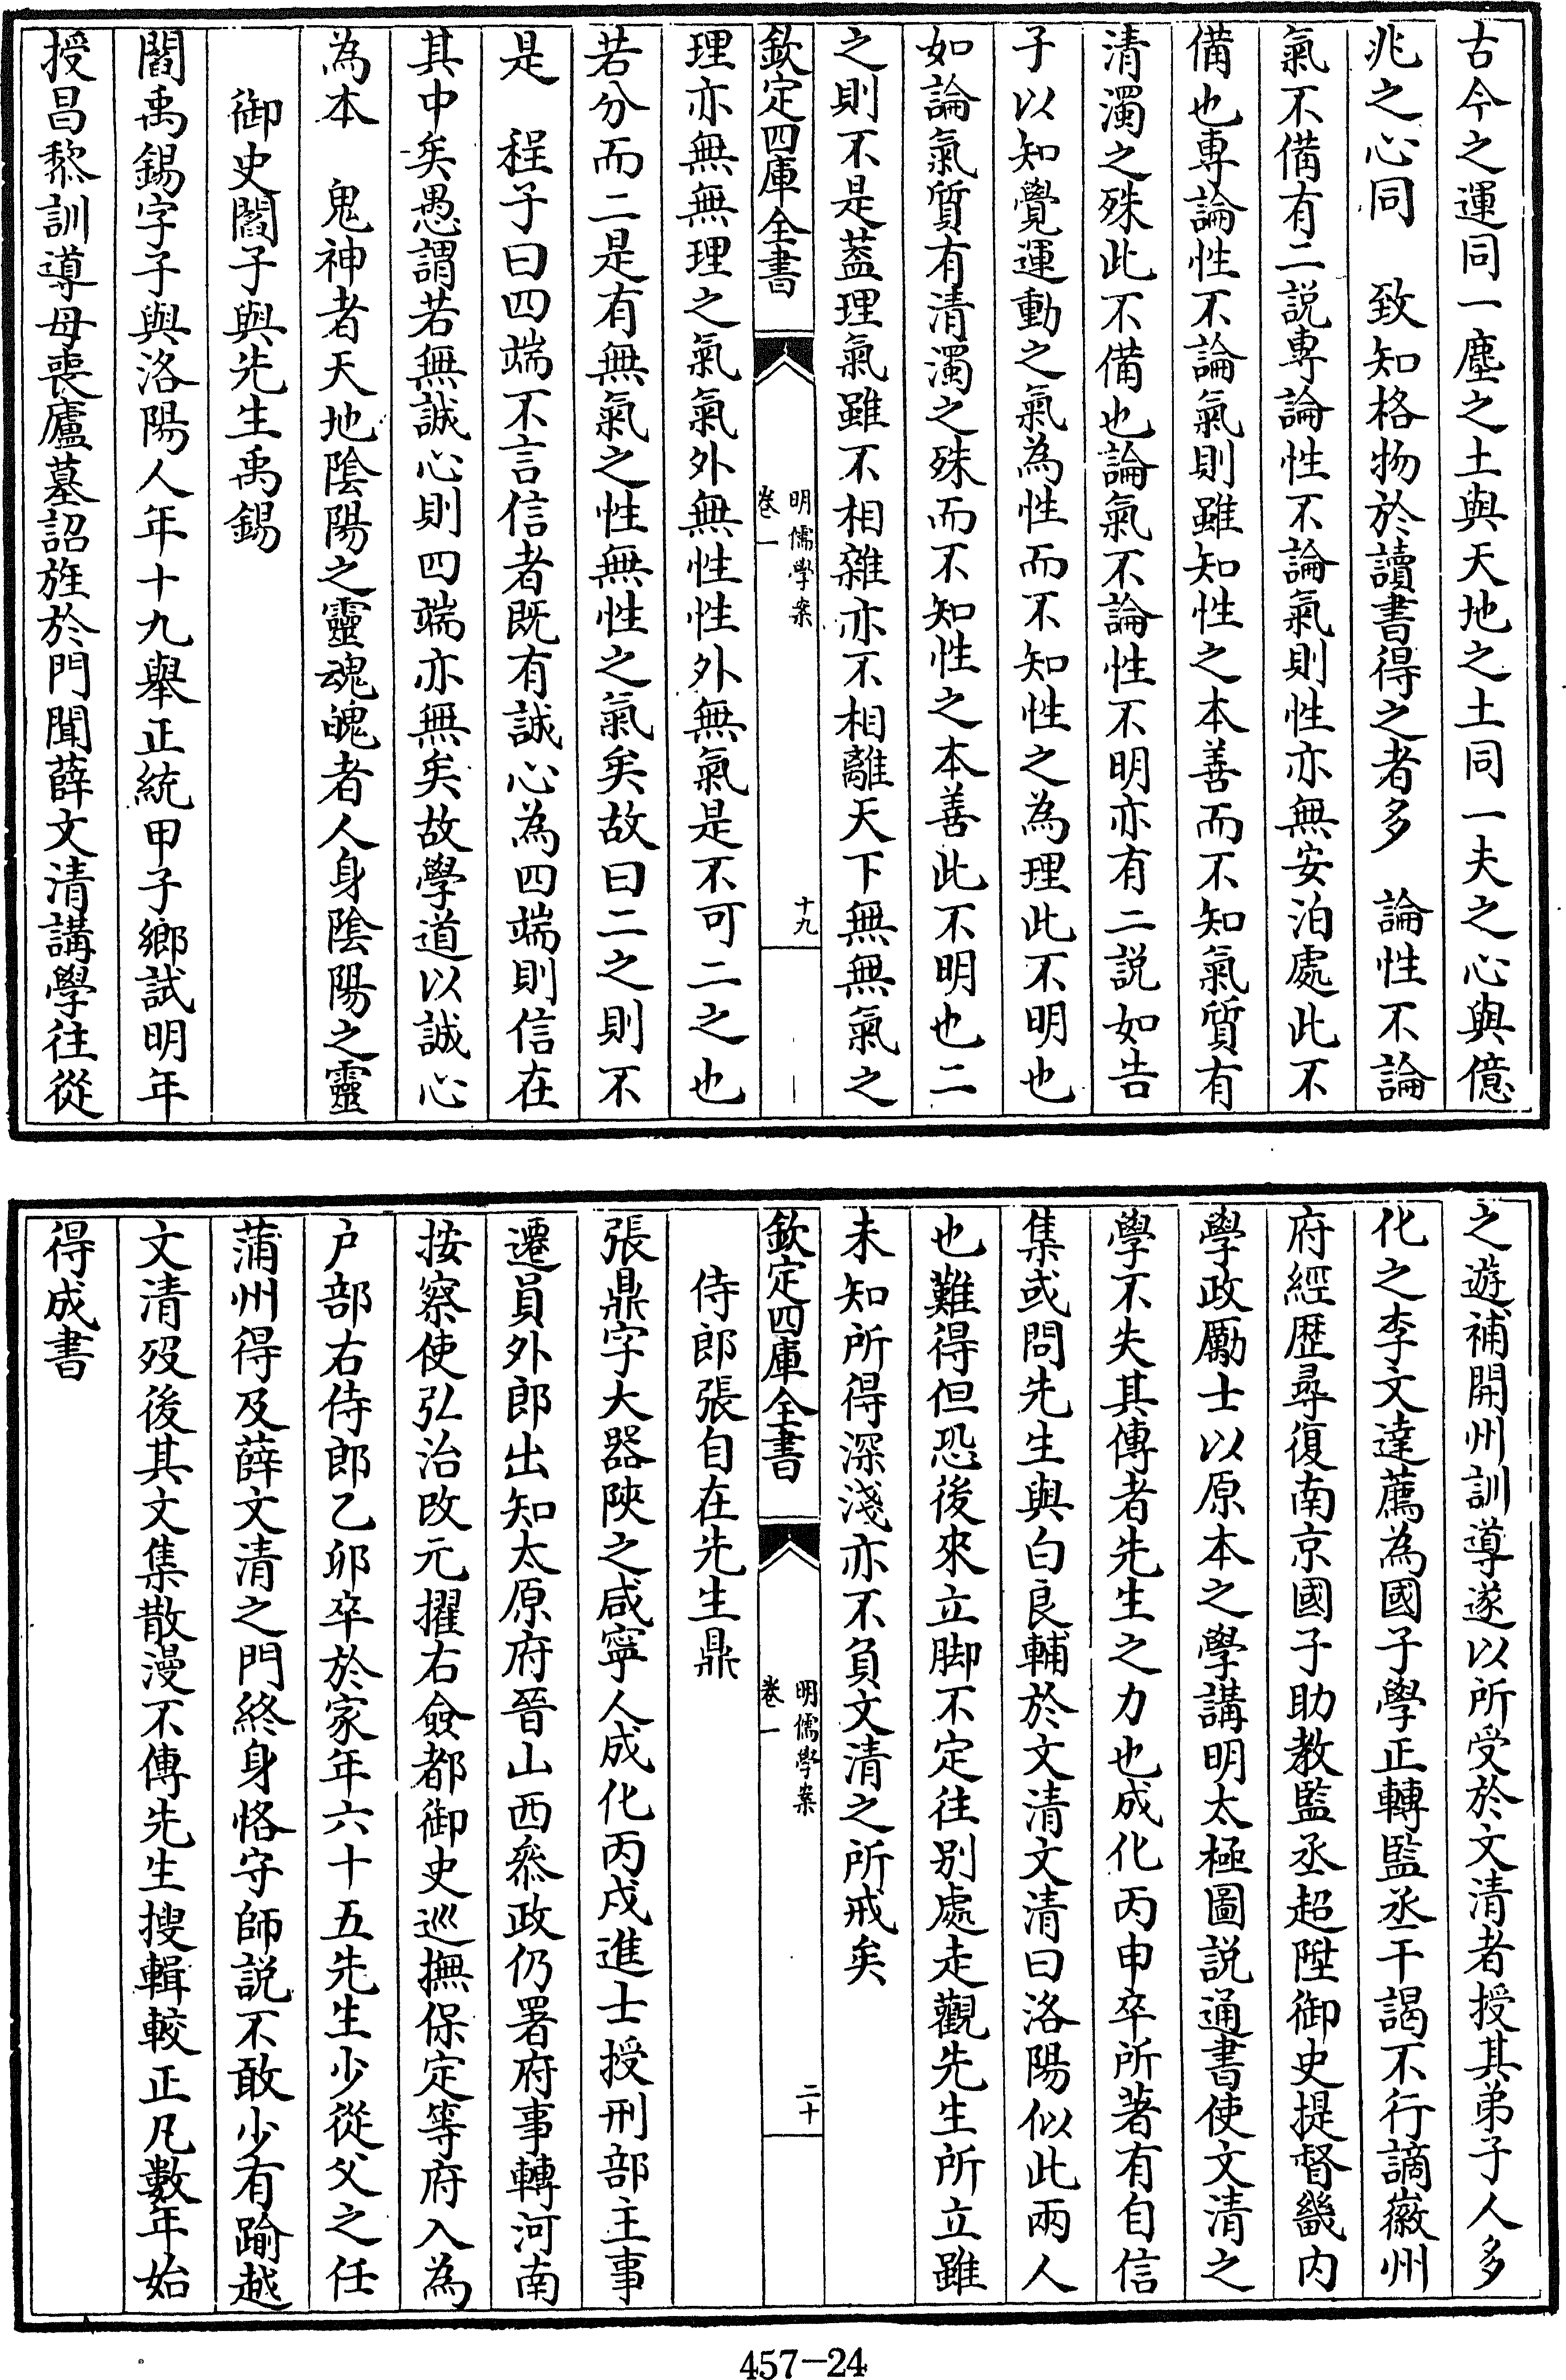 古今之運同一塵之土與天地之土同一夫之心與億
兆之心同　致知格物於讀書得之者多　論性不論
氣不備有二説專論性不論氣則性亦無安泊處此不
備也專論性不論氣則雖知性之本善而不知氣質有
清濁之殊此不備也論氣不論性不明亦有二説如告
子以知覺運動之氣為性而不知性之為理此不明也
如論氣質有清濁之殊而不知性之本善此不明也二
之則不是葢理氣雖不相雜亦不相離天下無無氣之
欽定四庫全書
明儒學案
卷一
十九
理亦無無理之氣氣外無性性外無氣是不可二之也
若分而二是有無氣之性無性之氣矣故曰二之則不
是　程子曰四端不言信者既有誠心為四端則信在
其中矣愚謂若無誠心則四端亦無矣故學道以誠心
為本　鬼神者天地陰陽之靈魂魄者人身陰陽之靈
御史閻子與先生禹錫
閻禹錫字子與洛陽人年十九舉正統甲子鄉試明年
授昌黎訓導母喪廬墓詔旌於門聞薛文清講學往從
之遊補開州訓導遂以所受於文清者授其弟子人多
化之李文達薦為國子學正轉監丞干謁不行謫徽州
府經歴尋復南京國子助教監丞超陞御史提督畿内
學政勵士以原本之學講明太極圖説通書使文清之
學不失其傳者先生之力也成化丙申卒所著有自信
集或問先生與白良輔於文清文清曰洛陽似此兩人
也難得但恐後來立脚不定往别處走觀先生所立雖
未知所得深淺亦不負文清之所戒矣
欽定四庫全書
明儒學案
卷一
二十
侍郎張自在先生鼎
張鼎字大器陜之咸寧人成化丙戌進士授刑部主事
遷員外郎出知太原府晉山西叅政仍署府事轉河南
按察使弘治改元擢右僉都御史巡撫保定等府入為
户部右侍郎乙卯卒於家年六十五先生少從父之任
蒲州得及薛文清之門終身恪守師説不敢少有踰越
文清歿後其文集散漫不傳先生搜輯較正凡數年始
得成書
457-24